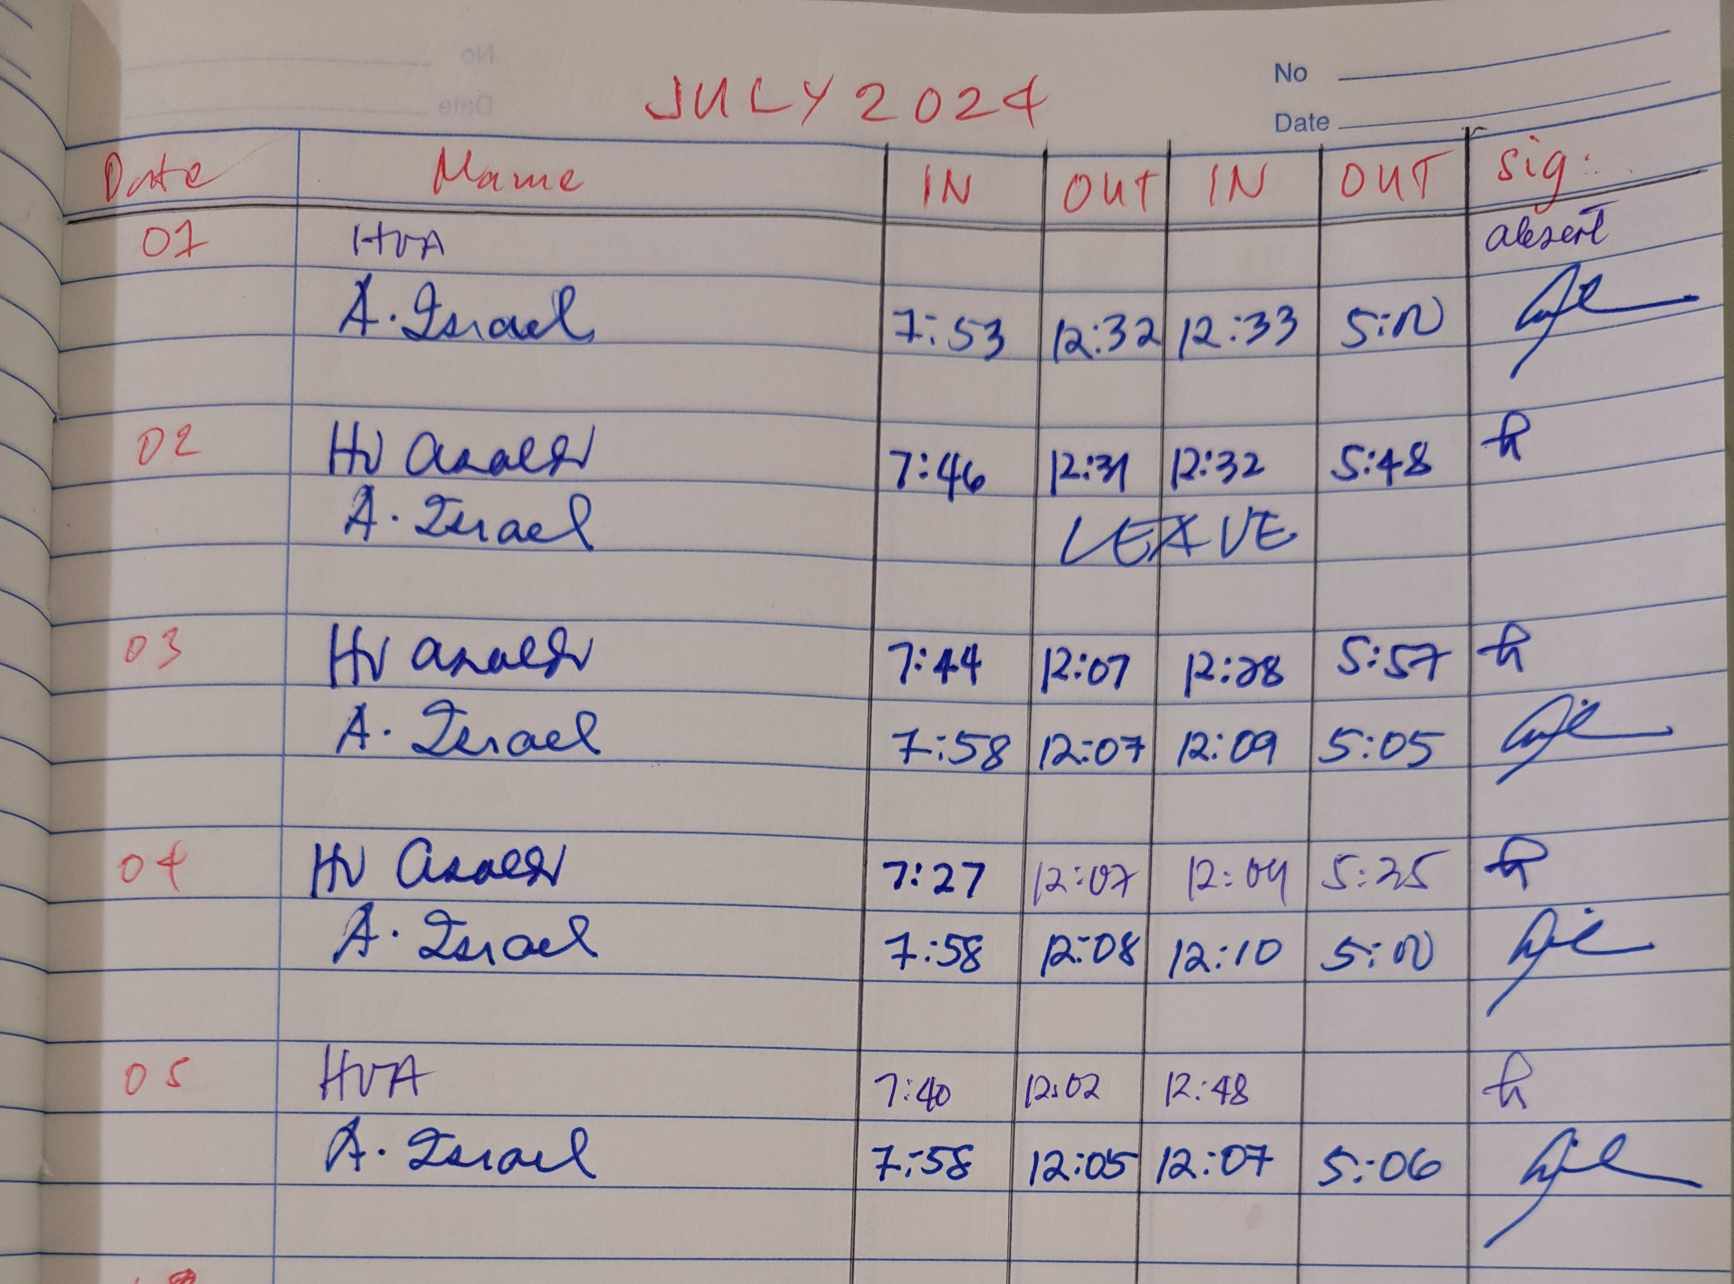 No
Date
JULY 2024
Date Name IN OUT IN OUT Sig:
01 HVA absent
A. Israel 7:53 12:32 12:33 5:00
02 HV 7:46 12:31 12:32 5:48
A. Israel LEAVE
03 HV 7:44 12:07 12:28 5:57
A. Israel 7:58 12:07 12:09 5:05
04 HV 7:27 12:07 12:09 5:25
A. Israel 7:58 12:08 12:10 5:00
05 HVA 7:40 12:02 12:48
A. Israel 7:58 12:05 12:07 5:06